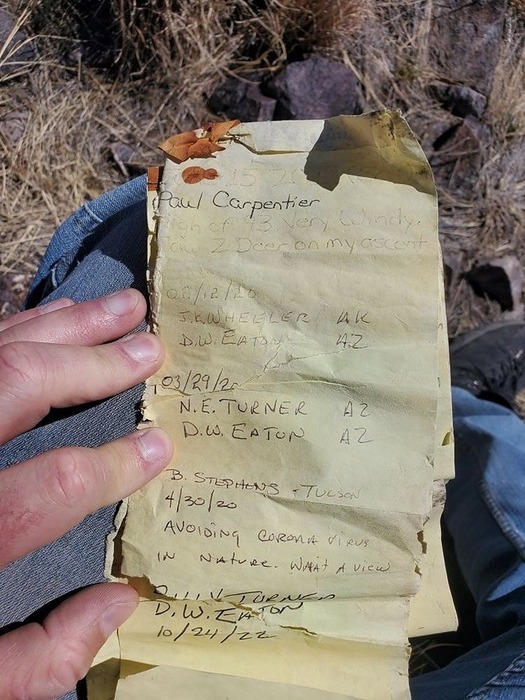 15 20
Paul Carpentier
High of 43 Very Windy.
Saw 2 Deer on my ascent
J.K. WHEELER AK
D.W. EATON AZ
03/29/20
N.E. TURNER AZ
D.W. EATON AZ
B. STEPHENS - TUCSON
4/30/20
AVOIDING CORONA VIRUS
IN NATURE. WHAT A VIEW
TURNER
D.W. EATON
10/24/22